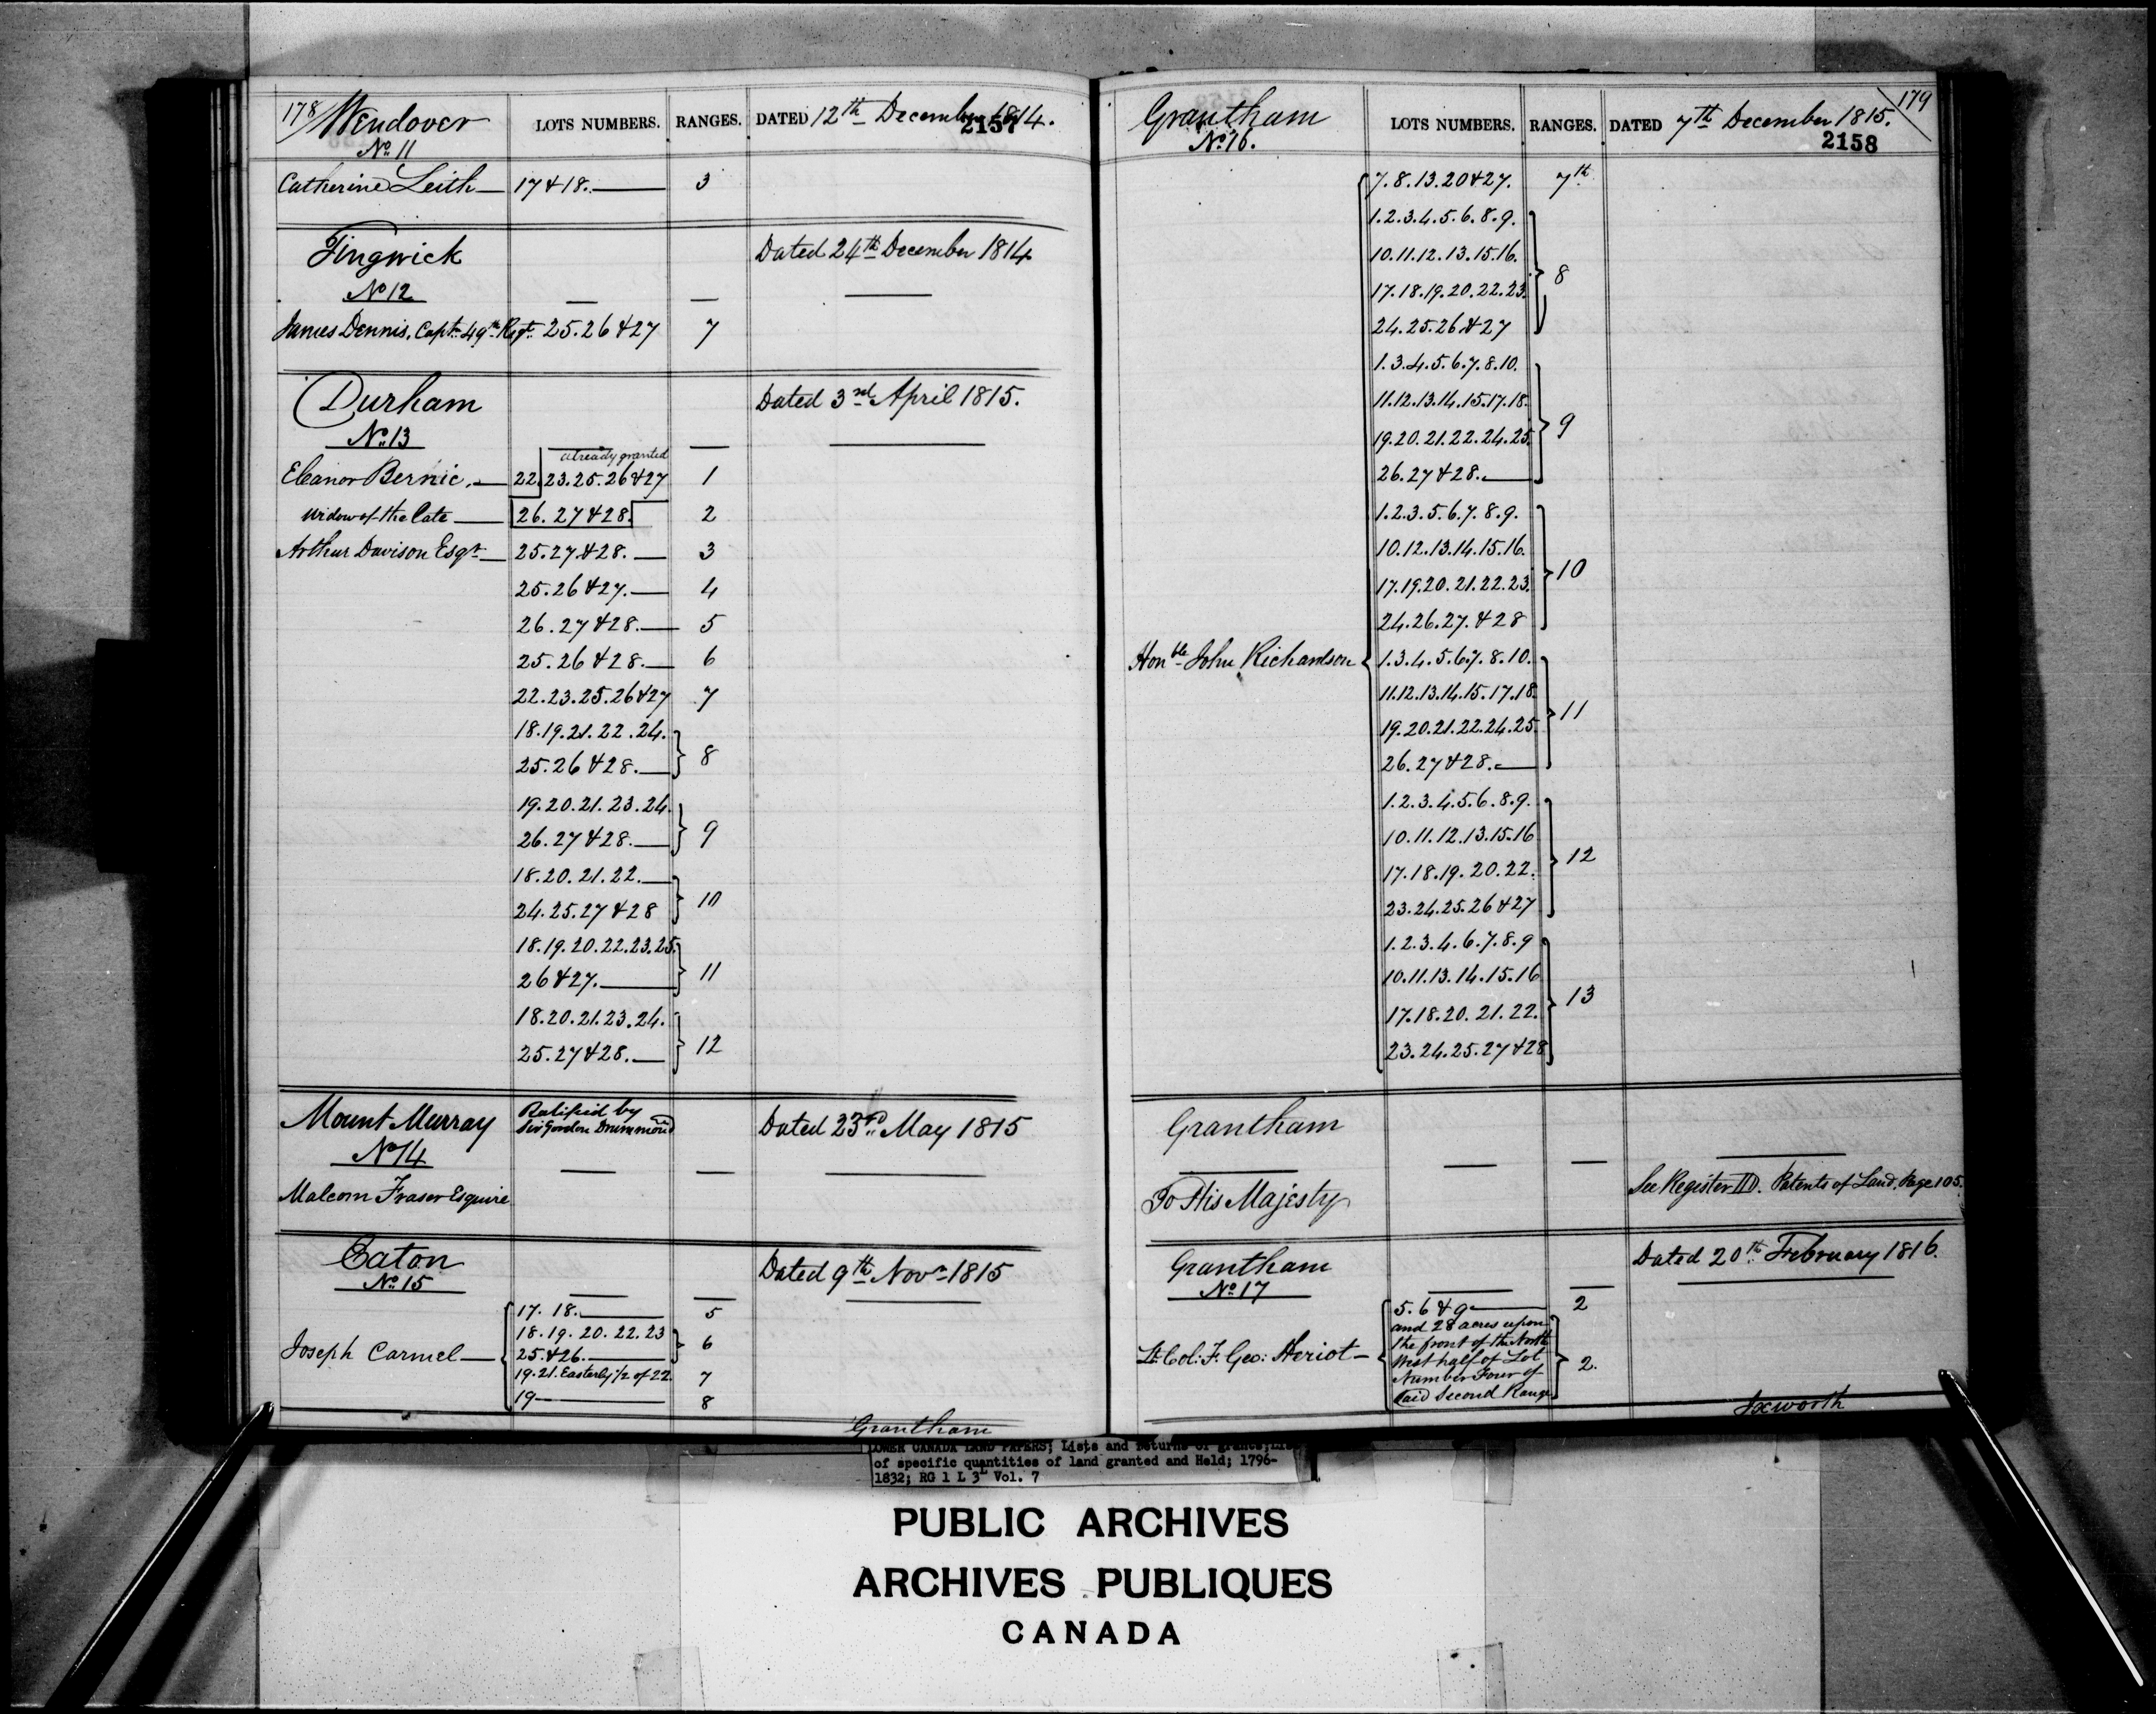 178 Wendover LOTS NUMBERS. RANGES. DATED 12th December 1814.
2157
No. 11
Catherine Leith 17 & 18. 3
Tingwick Dated 24th December 1814
No 12
James Dennis, Captn. 49th Regt. 25. 26 & 27 7
Durham Dated 3rd April 1815.
No. 13
already granted
Eleanor Bernie. 22. 23. 25. 26 & 27 1
Widow of the late 26. 27 & 28. 2
Arthur Davison Esqr. 25. 27. & 28. 3
25. 26 & 27. 4
26. 27 & 28. 5
25. 26 & 28. 6
22. 23. 25. 26 & 27 7
18. 19. 21. 22. 24.
25. 26 & 28. 8
19. 20. 21. 23. 24.
26. 27 & 28. 9
18. 20. 21. 22.
24. 25. 27 & 28 10
18. 19. 20. 22. 23. 25.
26 & 27. 11
18. 20. 21. 23. 24.
25. 27 & 28. 12
Mount Murray Ratified by Dated 23rd May 1815
Sir Gordon Drummond
No 14
Malcom Fraser Esquire
Eaton Dated 9th Novr 1815
No. 15
17. 18. 5
18. 19. 20. 22. 23
Joseph Carmel 25. & 26. 6
19. 21. Easterly 1/2 of 22. 7
19 8
Grantham
Grantham LOTS NUMBERS. RANGES. DATED 7th December 1815. 179
No. 16. 2158
7. 8. 13. 20 & 27. 7th
1. 2. 3. 4. 5. 6. 8. 9.
10. 11. 12. 13. 15. 16.
17. 18. 19. 20. 22. 23. 8
24. 25. 26. & 27
1. 3. 4. 5. 6. 7. 8. 10.
11. 12. 13. 14. 15. 17. 18.
19. 20. 21. 22. 24. 25. 9
26. 27 & 28.
1. 2. 3. 5. 6. 7. 8. 9.
10. 12. 13. 14. 15. 16.
17. 19. 20. 21. 22. 23. 10
24. 26. 27. & 28
Honble John Richardson 1. 3. 4. 5. 6. 7. 8. 10.
11. 12. 13. 14. 15. 17. 18.
19. 20. 21. 22. 24. 25. 11
26. 27 & 28.
1. 2. 3. 4. 5. 6. 8. 9.
10. 11. 12. 13. 15. 16
17. 18. 19. 20. 22. 12
23. 24. 25. 26 & 27
1. 2. 3. 4. 6. 7. 8. 9
10. 11. 13. 14. 15. 16
17. 18. 20. 21. 22. 13
23. 24. 25. 27 & 28
Grantham
To His Majesty See Register D. Patents of Land, Page 105.
Grantham Dated 20th February 1816.
No. 17
5. 6 & 9 2
and 28 acres upon
the front of the North
Lt. Col: F. Geo: Heriot West half of Lot 2.
Number Four of
said Second Range
Ixworth
LOWER CANADA LAND PAPERS; Lists and returns of grants;
of specific quantities of land granted and Held; 1796-
1832; RG 1 L 3L Vol. 7
PUBLIC ARCHIVES
ARCHIVES PUBLIQUES
CANADA